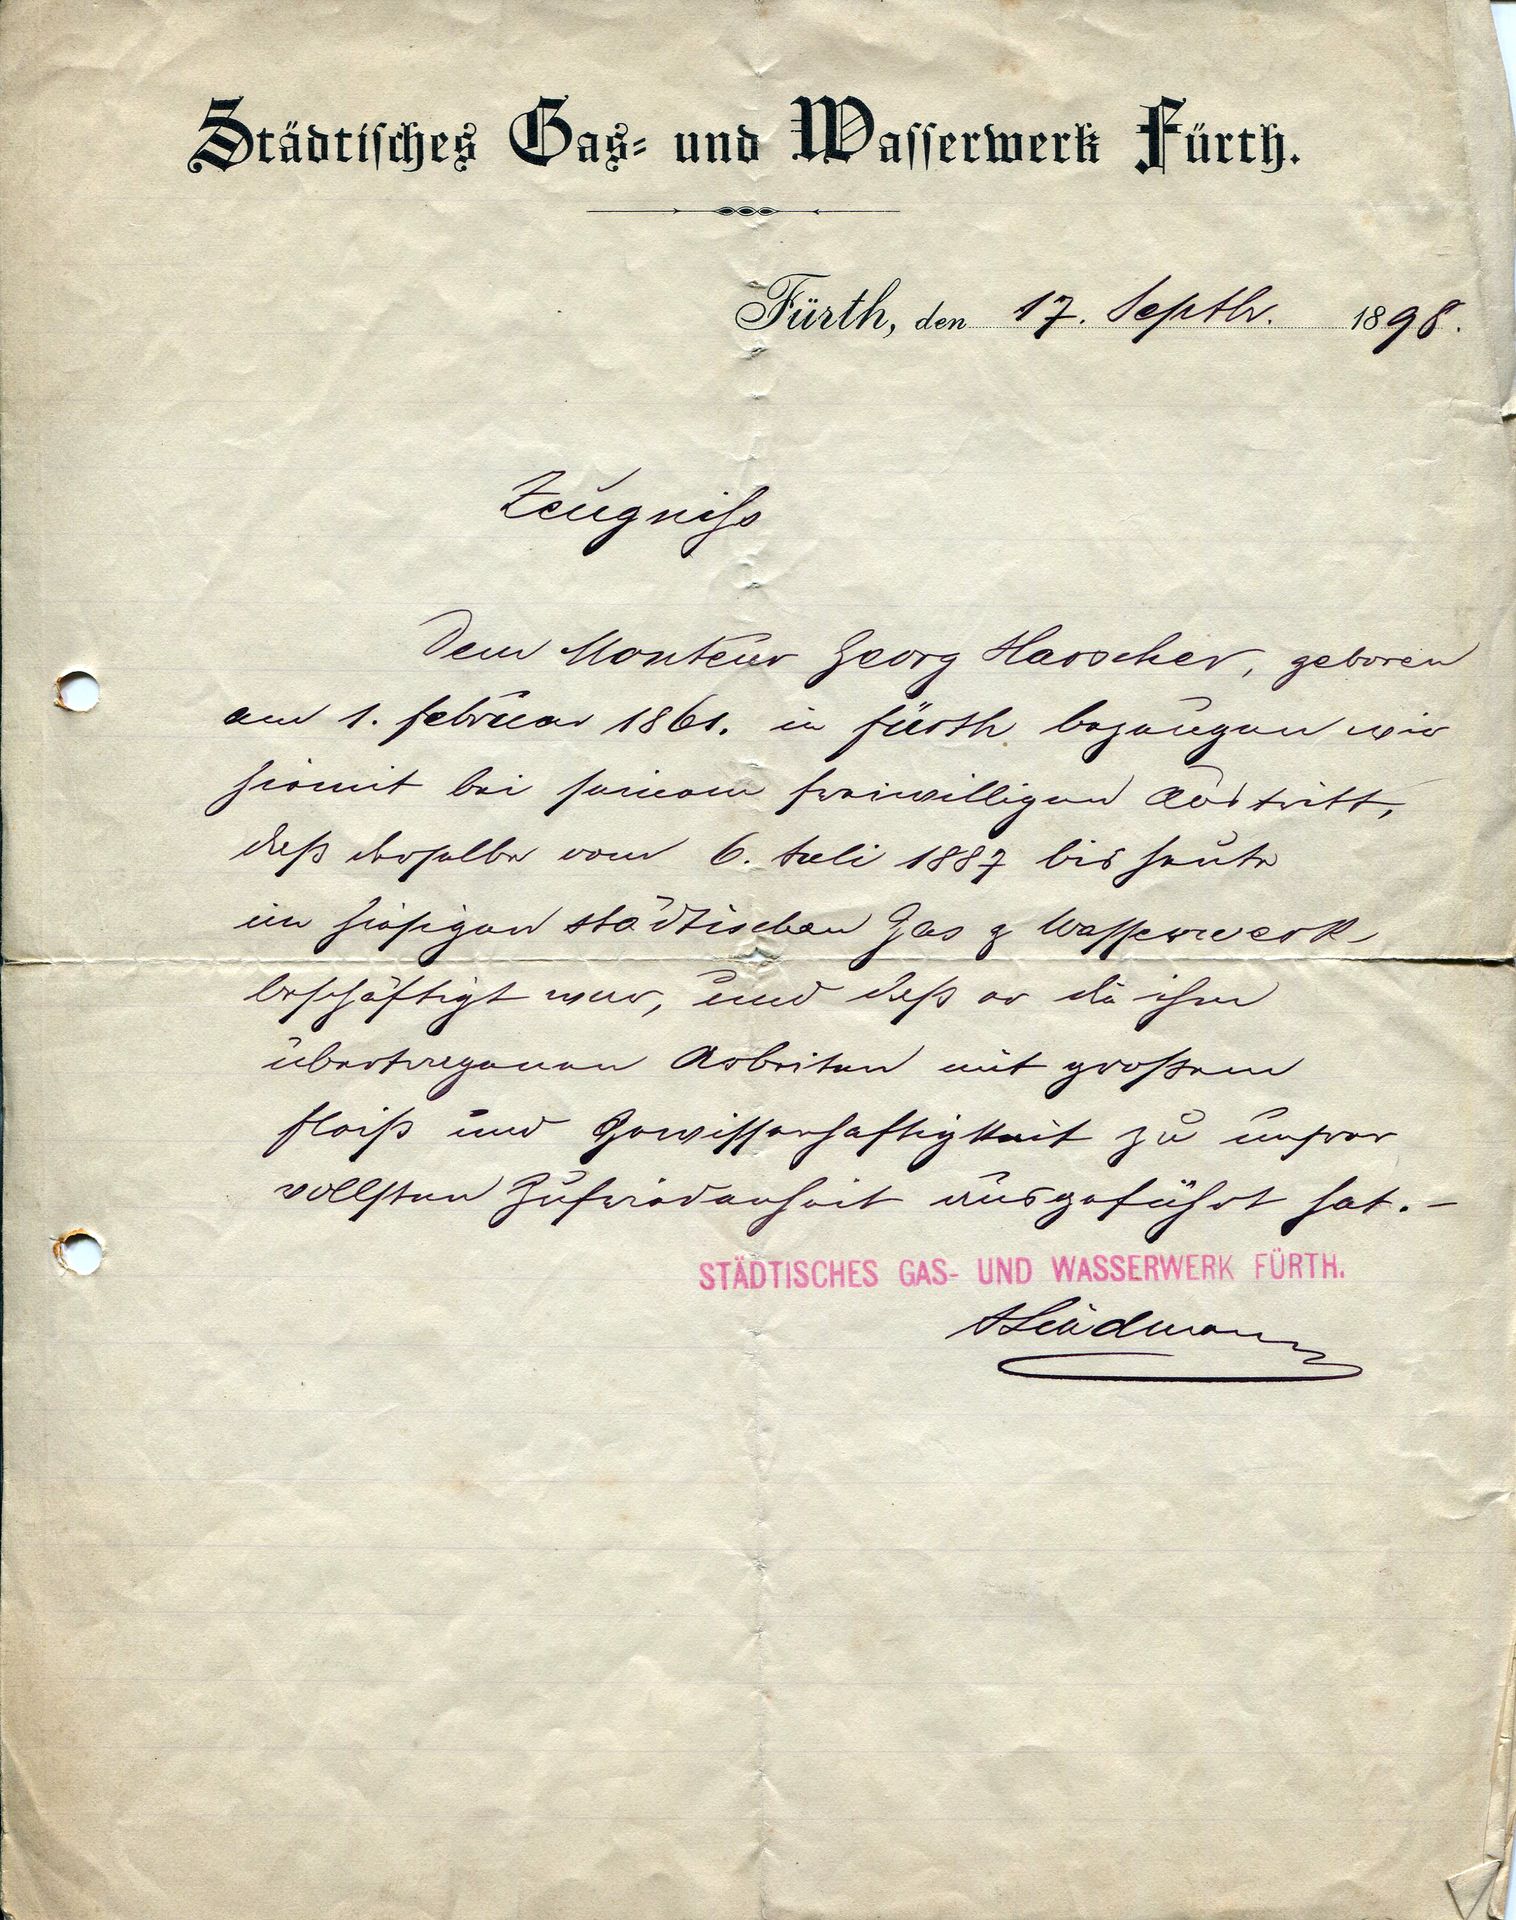 Städtisches Gas- und Wasserwerk Fürth.
Fürth, den 17. Septbr. 1898.
Zeugniß
Dem Monteur Georg Harscher, geboren
am 1. Februar 1861. in Fürth bezeugen wir
hiermit bei seinem freiwilligen Austritt,
daß derselbe vom 6. Juli 1887 bis heute
im hiesigen städtischen Gas & Wasserwerk
beschäftigt war, und daß er die ihm
übertragenen Arbeiten mit großem
Fleiß und Gewissenhaftigkeit zu unsrer
vollsten Zufriedenheit ausgeführt hat.-
STÄDTISCHES GAS- UND WASSERWERK FÜRTH.